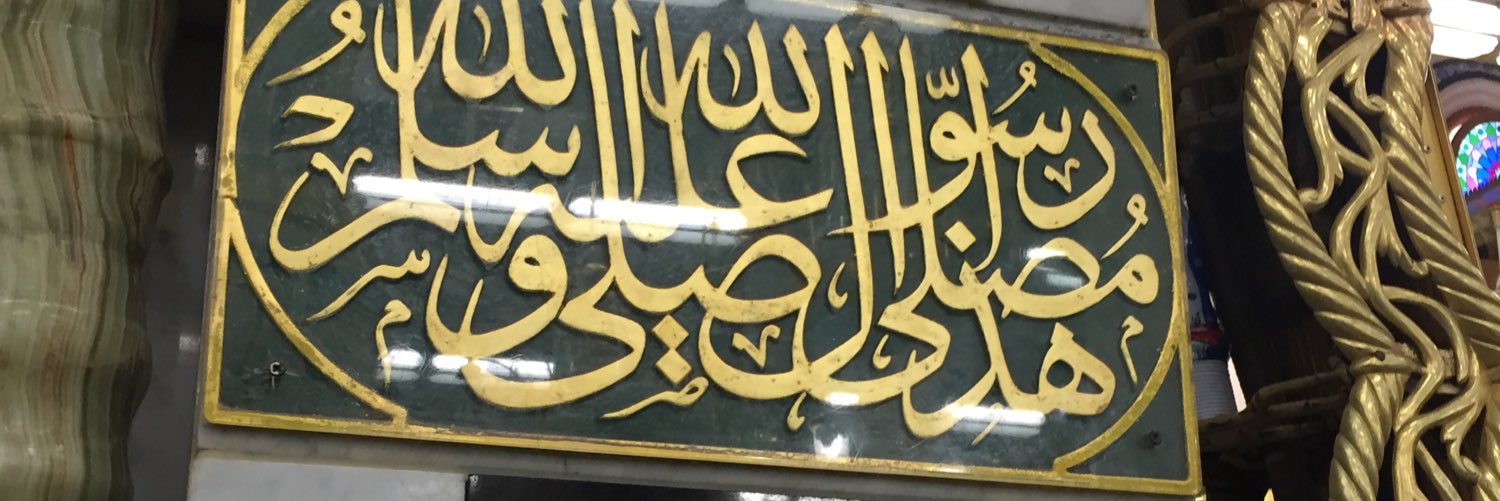 هذا مصلى رسول الله صلى الله عليه وسلم